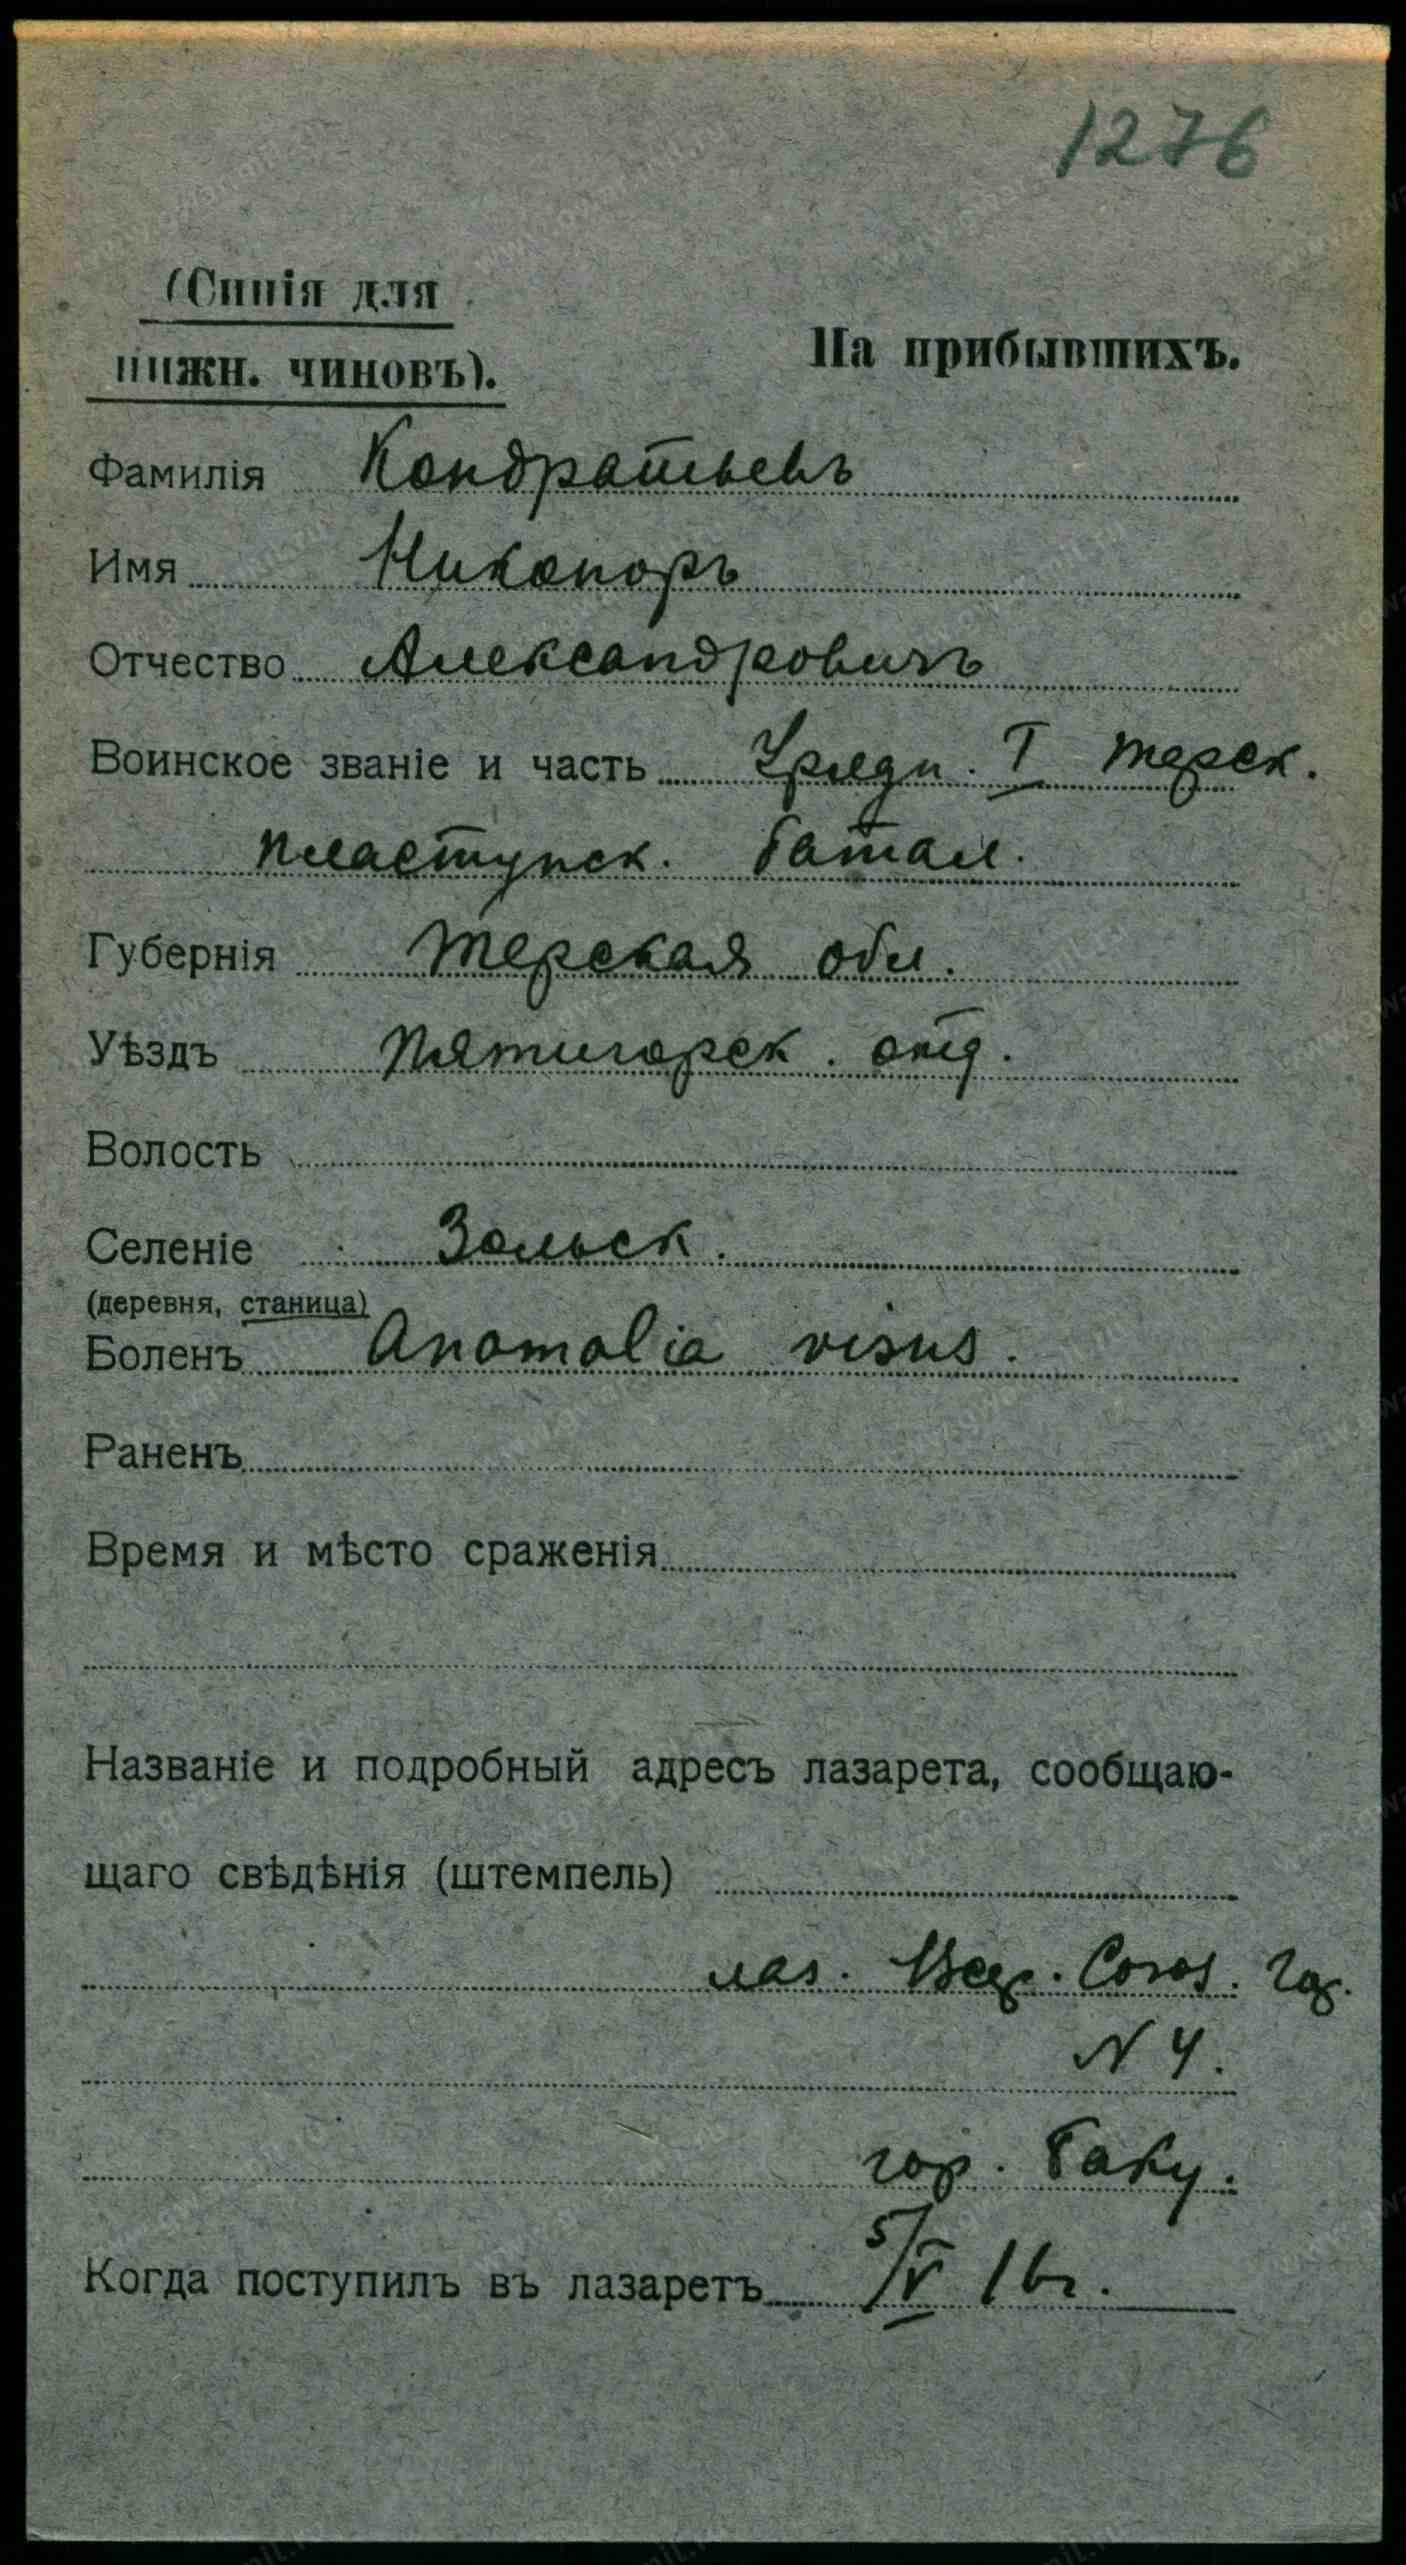 1276
(Синія для
нижн. чиновъ).
На прибывшихъ.
Фамилія Кондратьевъ
Имя Никоноръ
Отчество Александровичъ
Воинское званіе и часть Урядн. I Терск.
пластунск. батал.
Губернія Терская обл.
Уѣздъ Пятигорск. отд.
Волость
Селеніе Зольск.
(деревня, станица)
Боленъ Anomalia visus.
Раненъ
Время и мѣсто сраженія
Названіе и подробный адресъ лазарета, сообщаю-
щаго свѣдѣнія (штемпель)
лаз. Всер. Союз. Гор.
N 4.
гор. Баку.
Когда поступилъ въ лазаретъ 5/V 16 г.